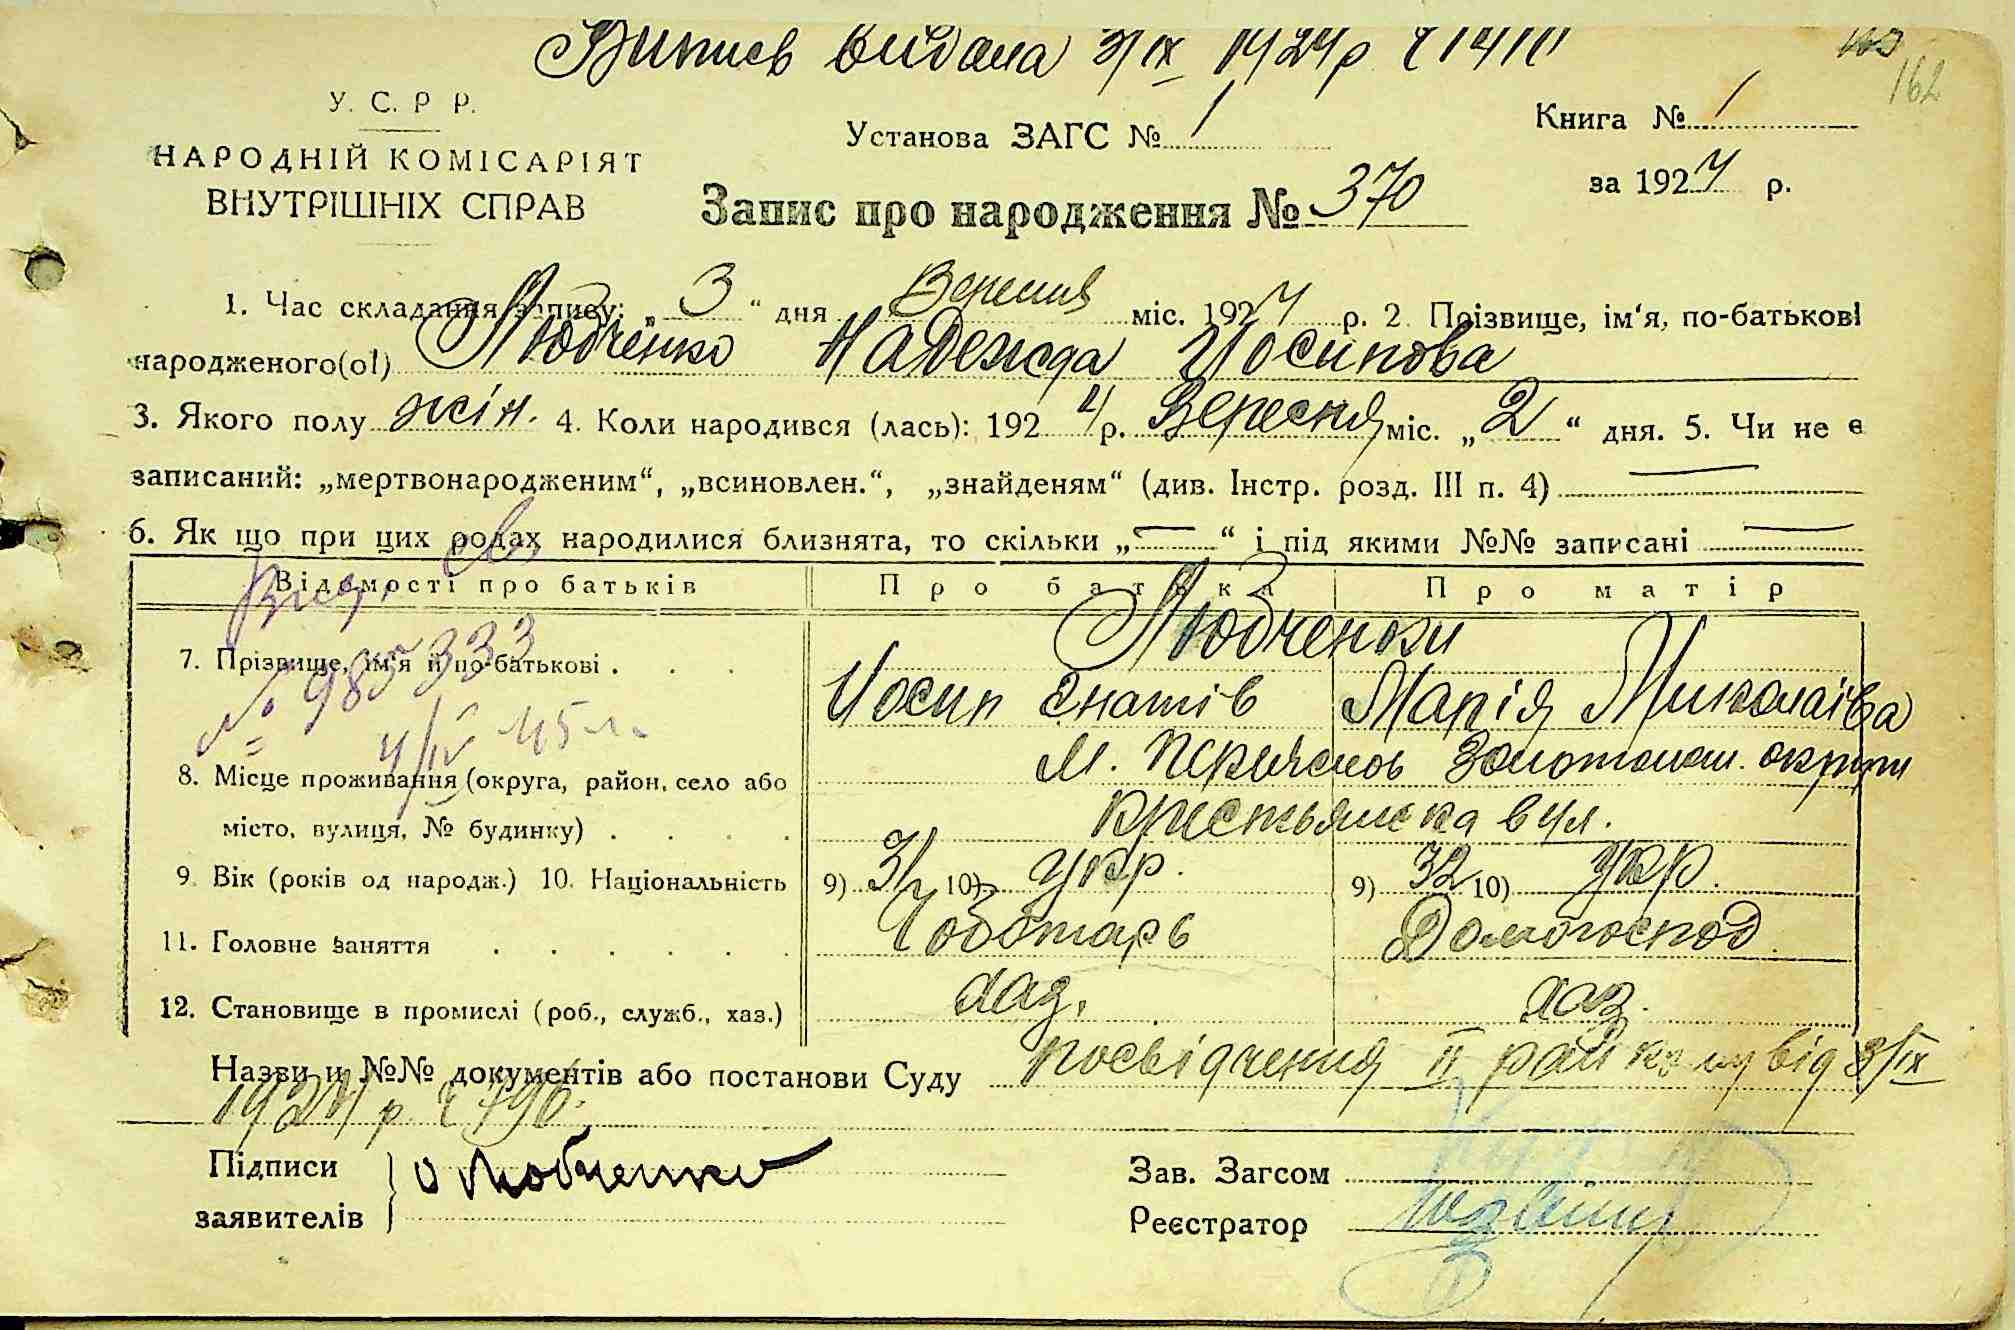 Випись видана 3/IX 1924 р
162
У. С. Р. Р.
НАРОДНІЙ КОМІСАРІЯТ
ВНУТРІШНІХ СПРАВ
Установа ЗАГС № 1
Книга № 1
за 1924 р.
Запис про народження № 370
1. Час складання запису: „ 3 “ дня Вересня міс. 1924 р. 2. Прізвище, ім'я, по-батькові
народженого(ої) Любченко Надежда Иосипова
3. Якого полу жін. 4. Коли народився (лась): 1924 р. Вересня міс. „ 2 “ дня. 5. Чи не є
записаний: „мертвонародженим“, „всиновлен.“, „знайденям“ (див. Інстр. розд. III п. 4) —
6. Як що при цих родах народилися близнята, то скільки „ — “ і під якими №№ записані —
Відомості про батьків Про батька Про матір
Вид. св.
№ 985333
4/IV 45 г.
Любченки
7. Прізвище, ім'я й по-батькові . . .
Иосип Гнатів Марія Миколаїва
8. Місце проживання (округа, район, село або
місто, вулиця, № будинку) . . . .
м. Переяслов Золотонош. округи
крестьянська вул.
9. Вік (років од народж.) 10. Національність 9) 31 10) укр. 9) 32 10) укр.
11. Головне заняття . . . . . . Чоботарь Домогоспод.
12. Становище в промислі (роб., служб., хаз.) хаз. хаз.
Назви и №№ документів або постанови Суду посвідчення II райкому від 3/IX
1924 р. 796.
Підписи
заявителів
О Любченко
Зав. Загсом
Реєстратор